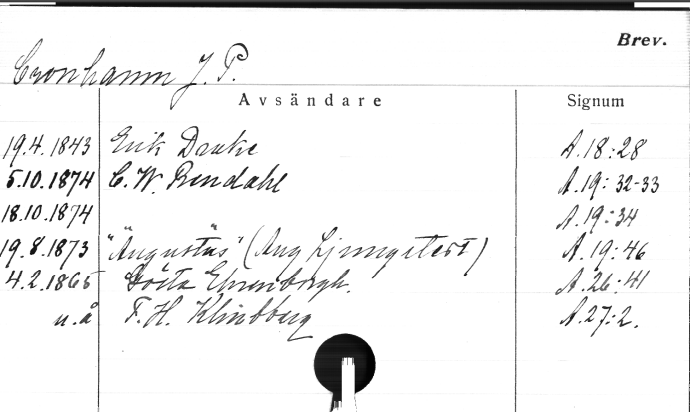 Brev.
Cronhamn J. P.
Avsändare Signum
19.4.1843 Erik Drake A.18:28
5.10.1874 C. W. Rendahl A.19:32-33
18.10.1874 A.19:34
19.8.1873 "Ängustäs" (Aug Ljungstedt) A.19:46
4.2.1865 Gösta Ehrenborgh. A.26:41
u.å F. H. Klintberg A.27:2.